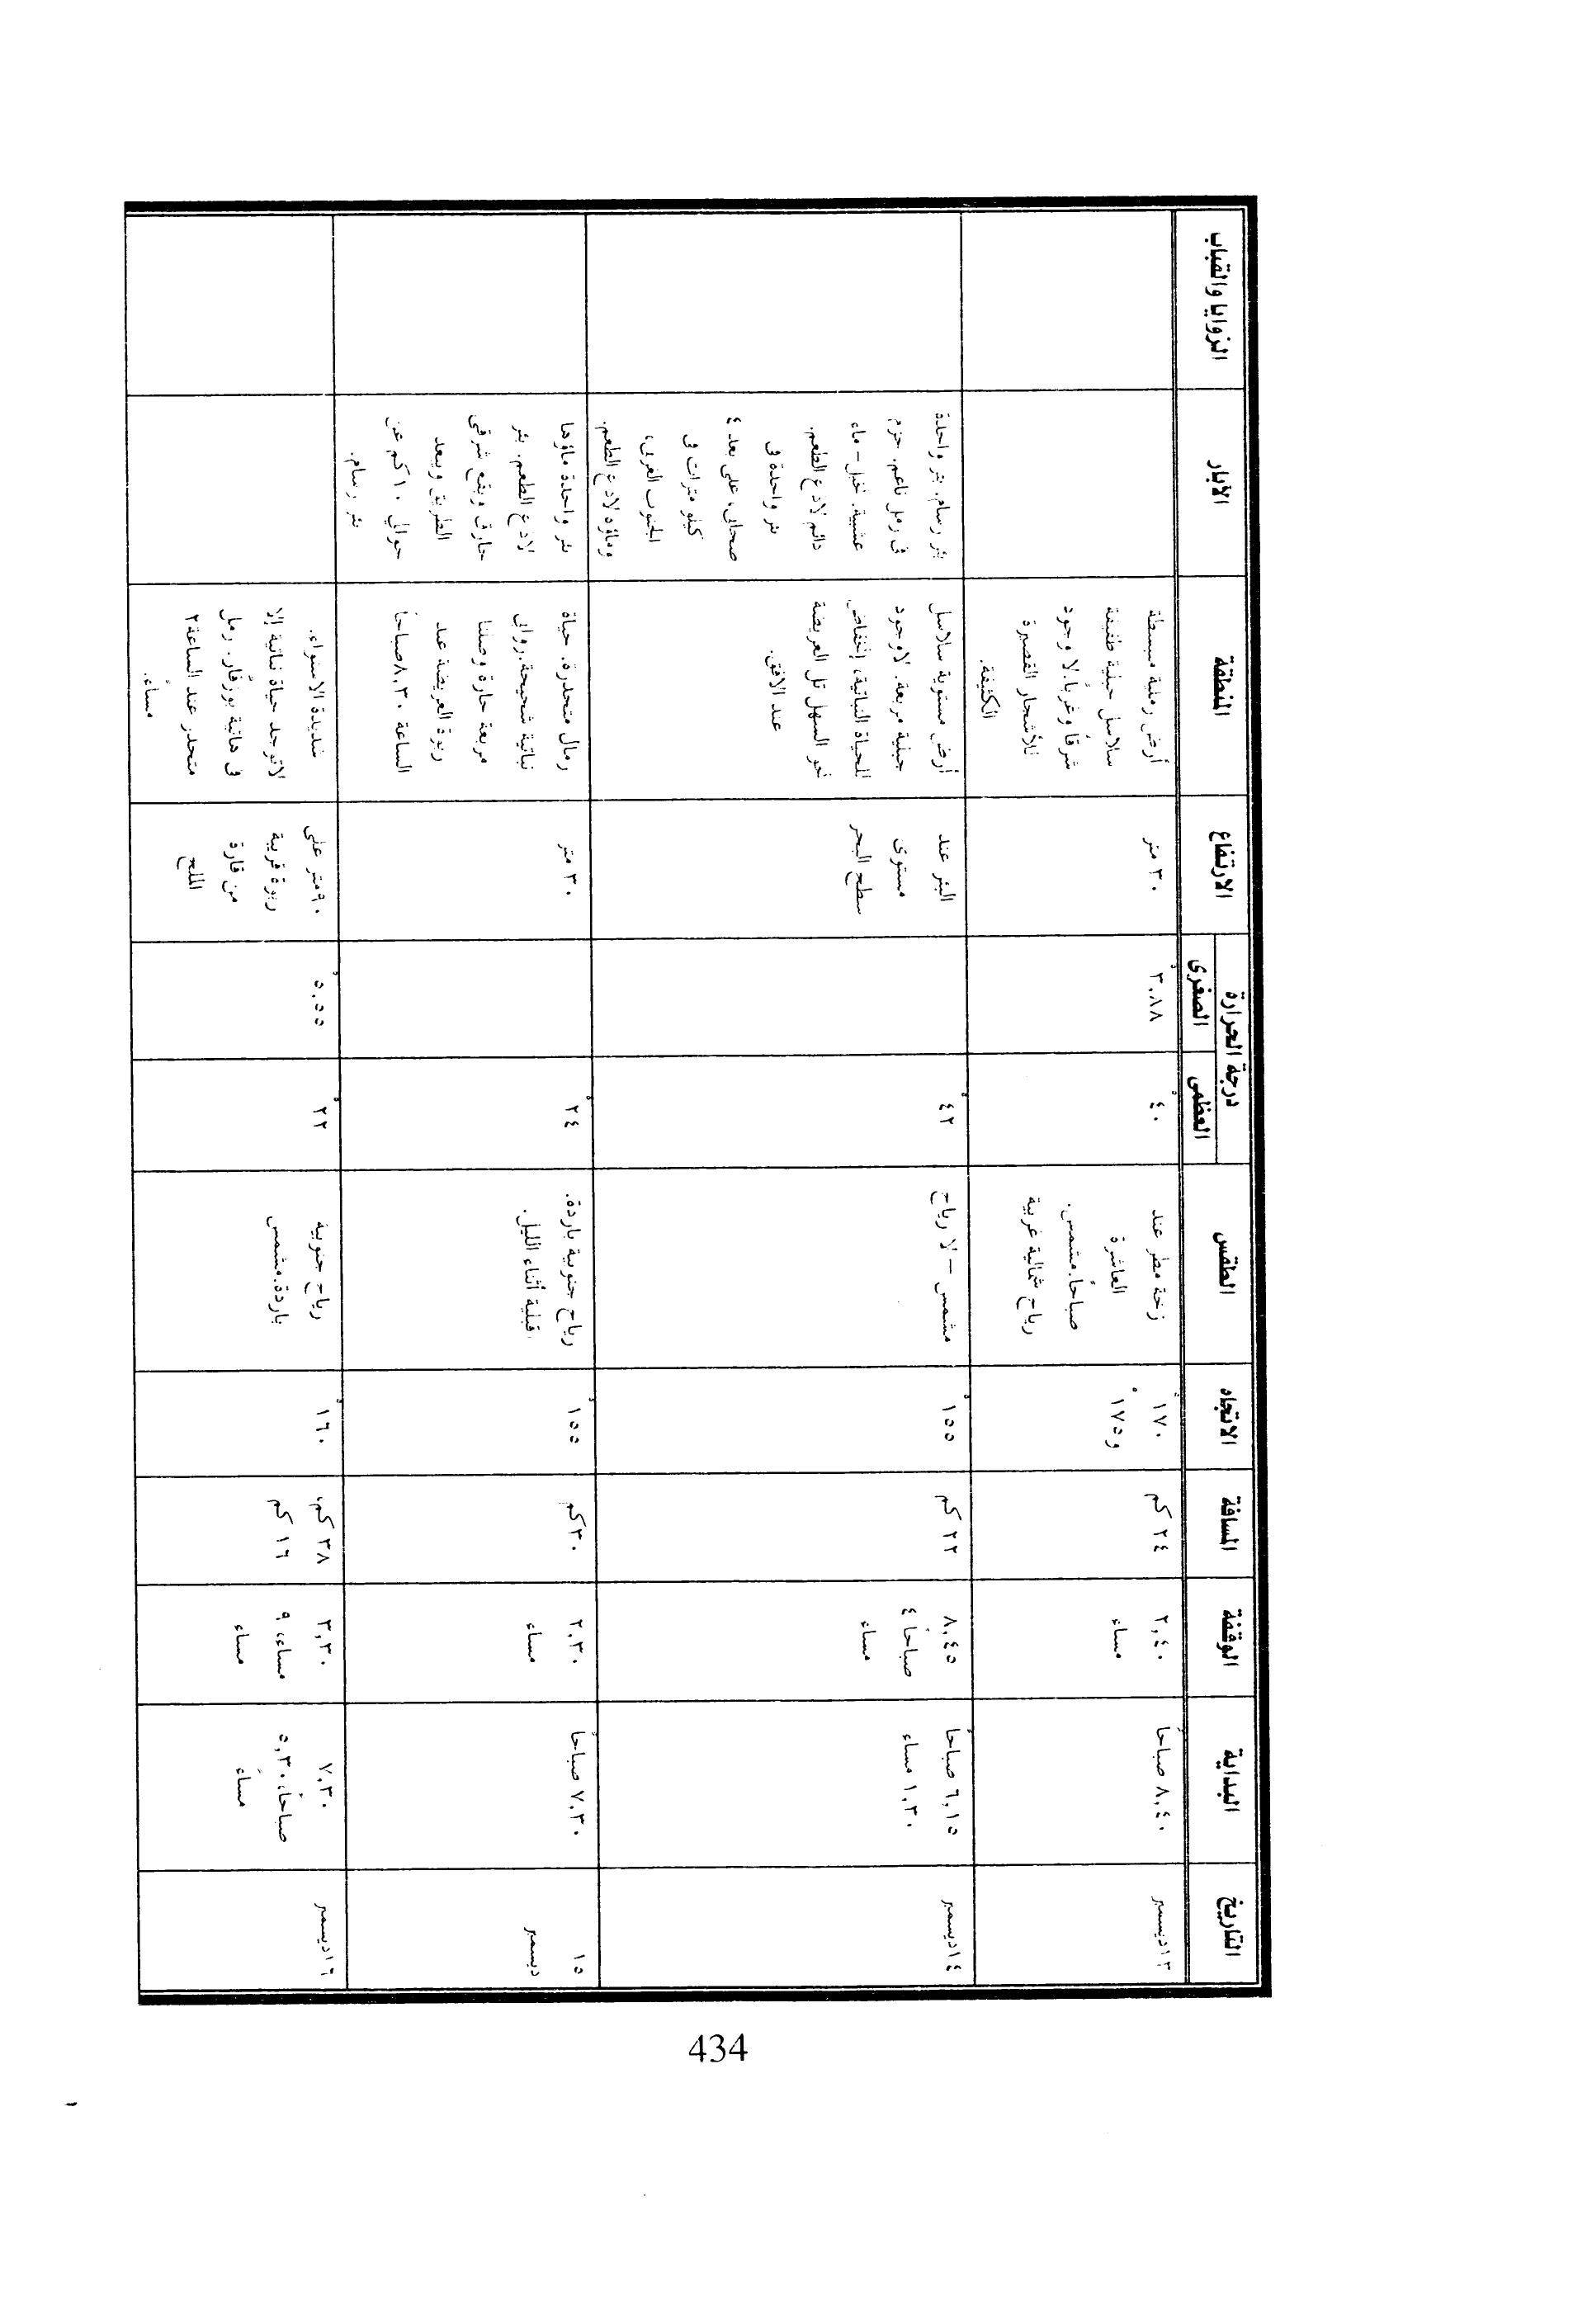 التاريخ
البداية
الوقفة
المسافة
الاتجاه
الطقس
درجة الحرارة
العظمى
الصغرى
الارتفاع
المنطقة
الآبار
الزوايا والقباب
١٣ديسمبر
٨,٤٠ صباحاً
٢,٤٠
مساء
٢٤ كم
١٧٠°
و١٧٥°
زخة مطر عند
العاشرة
صباحاً.مشمس.
رياح شمالية غربية
٤٠°
٣,٨٨°
٣٠ متر
أرض رملية منبسطة
سلاسل جبلية طفيفة
شرقاً وغرباً.لا وجود
للأشجار القصيرة
الكثيفة.
١٤ديسمبر
٦,١٥ صباحاً
١,٣٠ مساء
٨,٤٥
صباحاً ٤
مساء
٢٢ كم
١٥٥°
مشمس – لا رياح
٤٢°
البئر عند
مستوى
سطح البحر
أرض مستوية سلاسل
جبلية مربعة. لاوجود
للحياة النباتية، إنخفاض
نحو السهل تل العريضة
عند الافق.
بئر رسام. بئر واحدة
فى رمل ناعم. حزم
عشبية. نخيل – ماء
دائم لاذع الطعم.
بئر واحدة فى
صحابى، على بعد ٤
كيلو مترات فى
الجنوب الغربى،
وماؤه لاذع الطعم.
١٥
ديسمبر
٧,٣٠ صباحاً
٢,٣٠
مساء
٣٠كم
١٥٥°
رياح جنوبية باردة.
قبلية أثناء الليل.
٢٤°
٣٠ متر
رمال متحدرة. حياة
نباتية شحيحة.روابى
مربعة حارة وصلنا
ربوة العريضة عند
الساعة ٨,٣٠صباحاً
بئر واحدة ماؤها
لاذع الطعم. بئر
حارق ويقع شرقى
الطريق ويبعد
حوالي ١٠كم عن
بئر رسام.
١٦ديسمبر
٧,٣٠
صباحاً، ٥,٣٠
مساءً
٣,٣٠
مساء، ٩
مساء
٣٨ كم،
١٦ كم
١٦٠°
رياح جنوبية
باردة.مشمس
٢٢°
٥,٥٥°
٩٠متر على
ربوة قريبة
من قارة
الملح
شديدة الاستواء.
لاتوجد حياة نباتية إلا
فى هاتية بوزقار. رمل
متحدر عند الساعة ٢
مساءً.
434